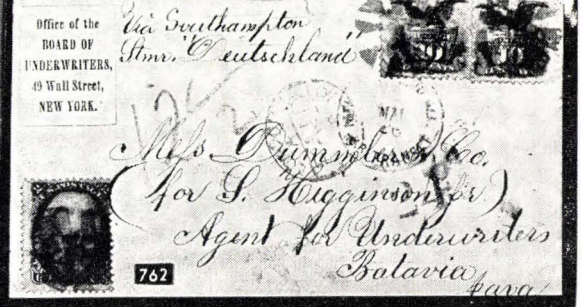 Office of the
BOARD OF
UNDERWRITERS,
49 Wall Street,
NEW YORK.
Via Southampton
Stmr. "Deutschland"
10
10
MAI
Mess Dummler & Co.
(for S. Higginson Jr.)
Agent for Underwriters
Batavia
Java
762